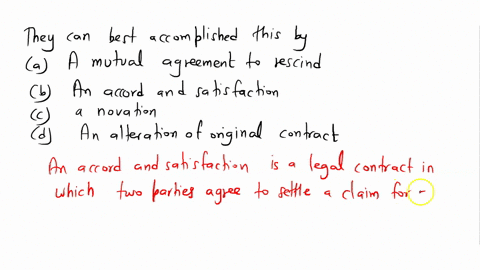 They can best accomplished this by
(a) A mutual agreement to rescind
(b) An accord and satisfaction
(c) a novation
(d) An alteration of original contract
An accord and satisfaction is a legal contract in
which two parties agree to settle a claim for -